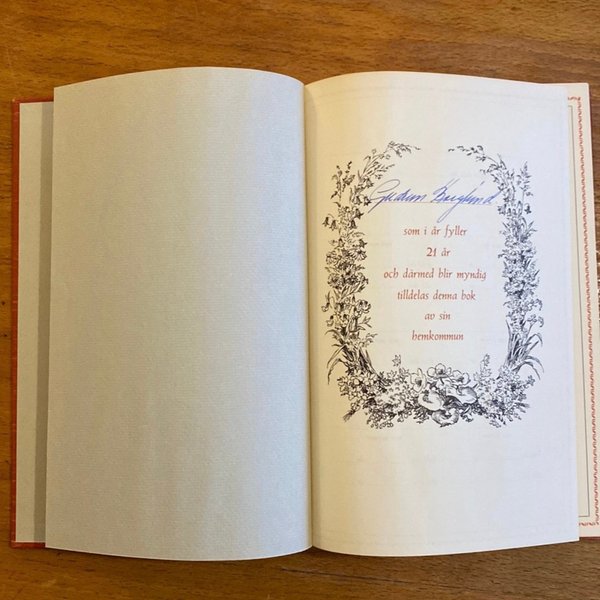 Gudrun Berglund
som i år fyller
21 år
och därmed blir myndig
tilldelas denna bok
av sin
hemkommun